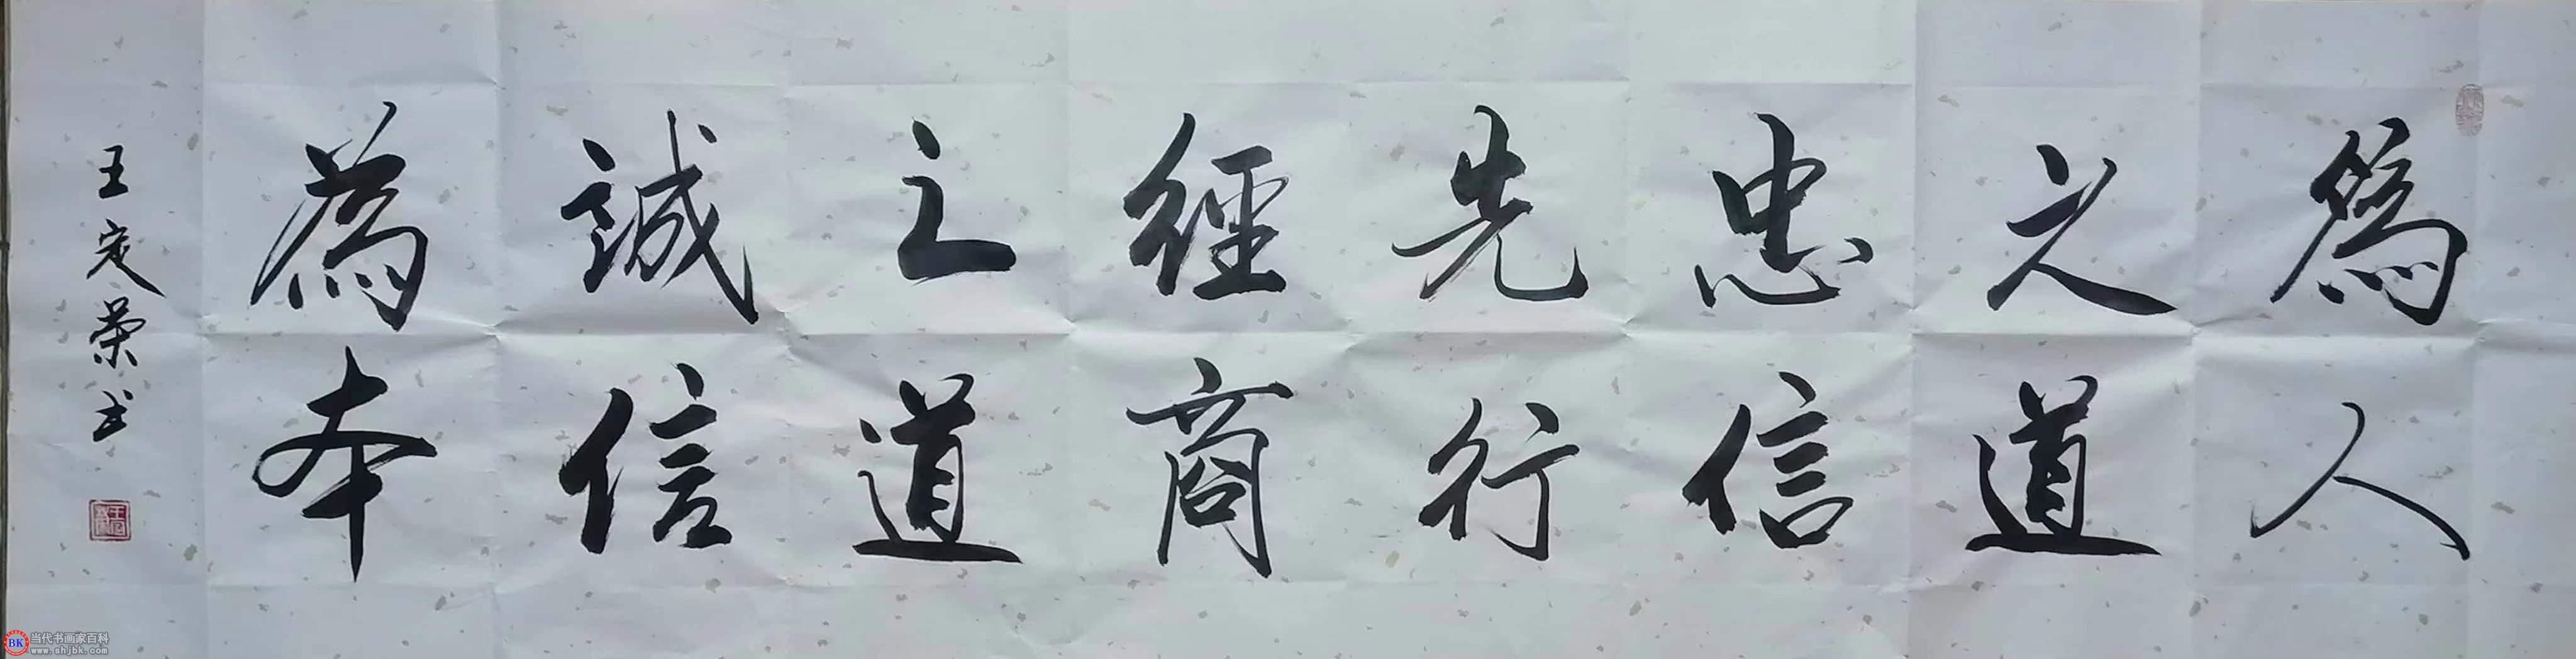 為人
之道
忠信
先行
經商
之道
誠信
為本
王定榮书
当代书画家百科
www.shjbk.com
BK